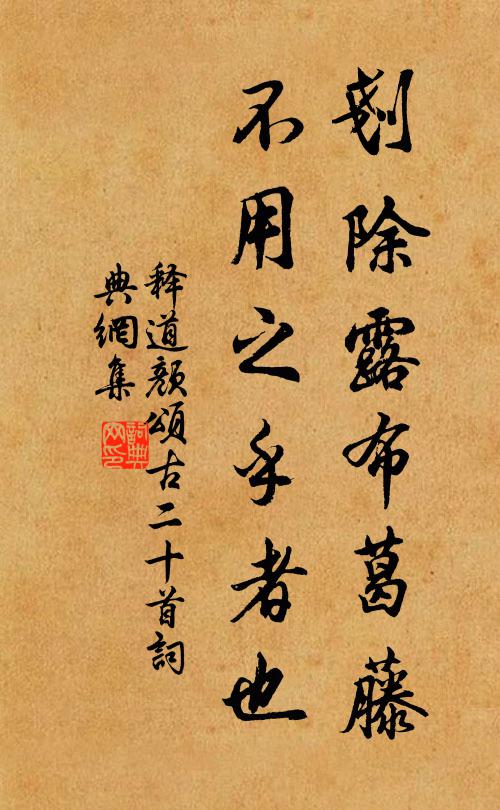 剗除露布葛藤
不用之乎者也
释道颜頌古二十首詞
典網集
詞典网印